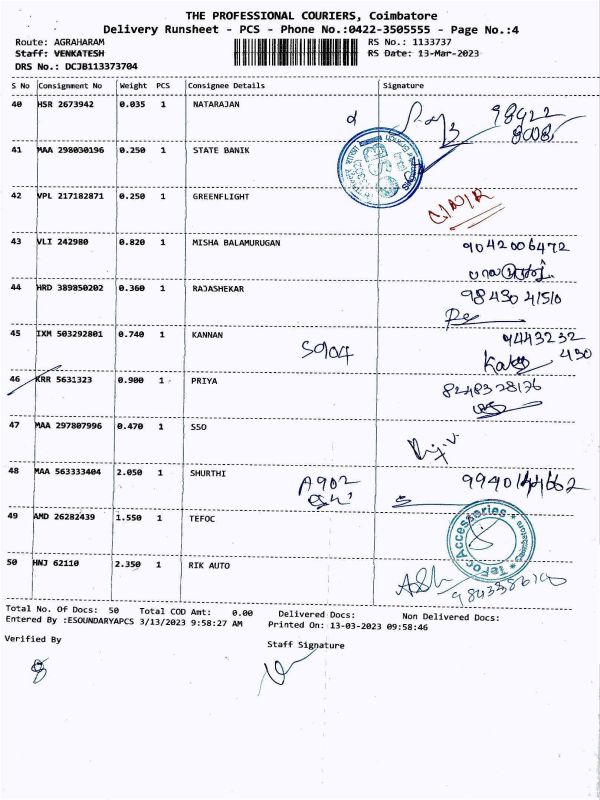 THE PROFESSIONAL COURIERS, Coimbatore
Delivery Runsheet - PCS - Phone No.:0422-3505555 - Page No.:4
Route: AGRAHARAM RS No.: 1133737
Staff: VENKATESH RS Date: 13-Mar-2023
DRS No.: DCJB113373704
S No Consignment No Weight PCS Consignee Details Signature
40 HSR 2673942 0.035 1 NATARAJAN 98422
41 MAA 298030196 0.250 1 STATE BANIK
42 VPL 217182871 0.250 1 GREENFLIGHT
43 VLI 242980 0.820 1 MISHA BALAMURUGAN 9042006472
44 HRD 389850202 0.360 1 RAJASHEKAR 98430 41510
45 IXM 503292801 0.740 1 KANNAN S904 9443232
430
46 KRR 5631323 0.900 1 PRIYA 8248328176
47 MAA 297807996 0.470 1 SSO
48 MAA 563333404 2.050 1 SHURTHI A902
49 AMD 26282439 1.550 1 TEFOC TeFoc Accessories
50 HNJ 62110 2.350 1 RIK AUTO
Total No. Of Docs: 50 Total COD Amt: 0.00 Delivered Docs: Non Delivered Docs:
Entered By :ESOUNDARYAPCS 3/13/2023 9:58:27 AM Printed On: 13-03-2023 09:58:46
Verified By Staff Signature